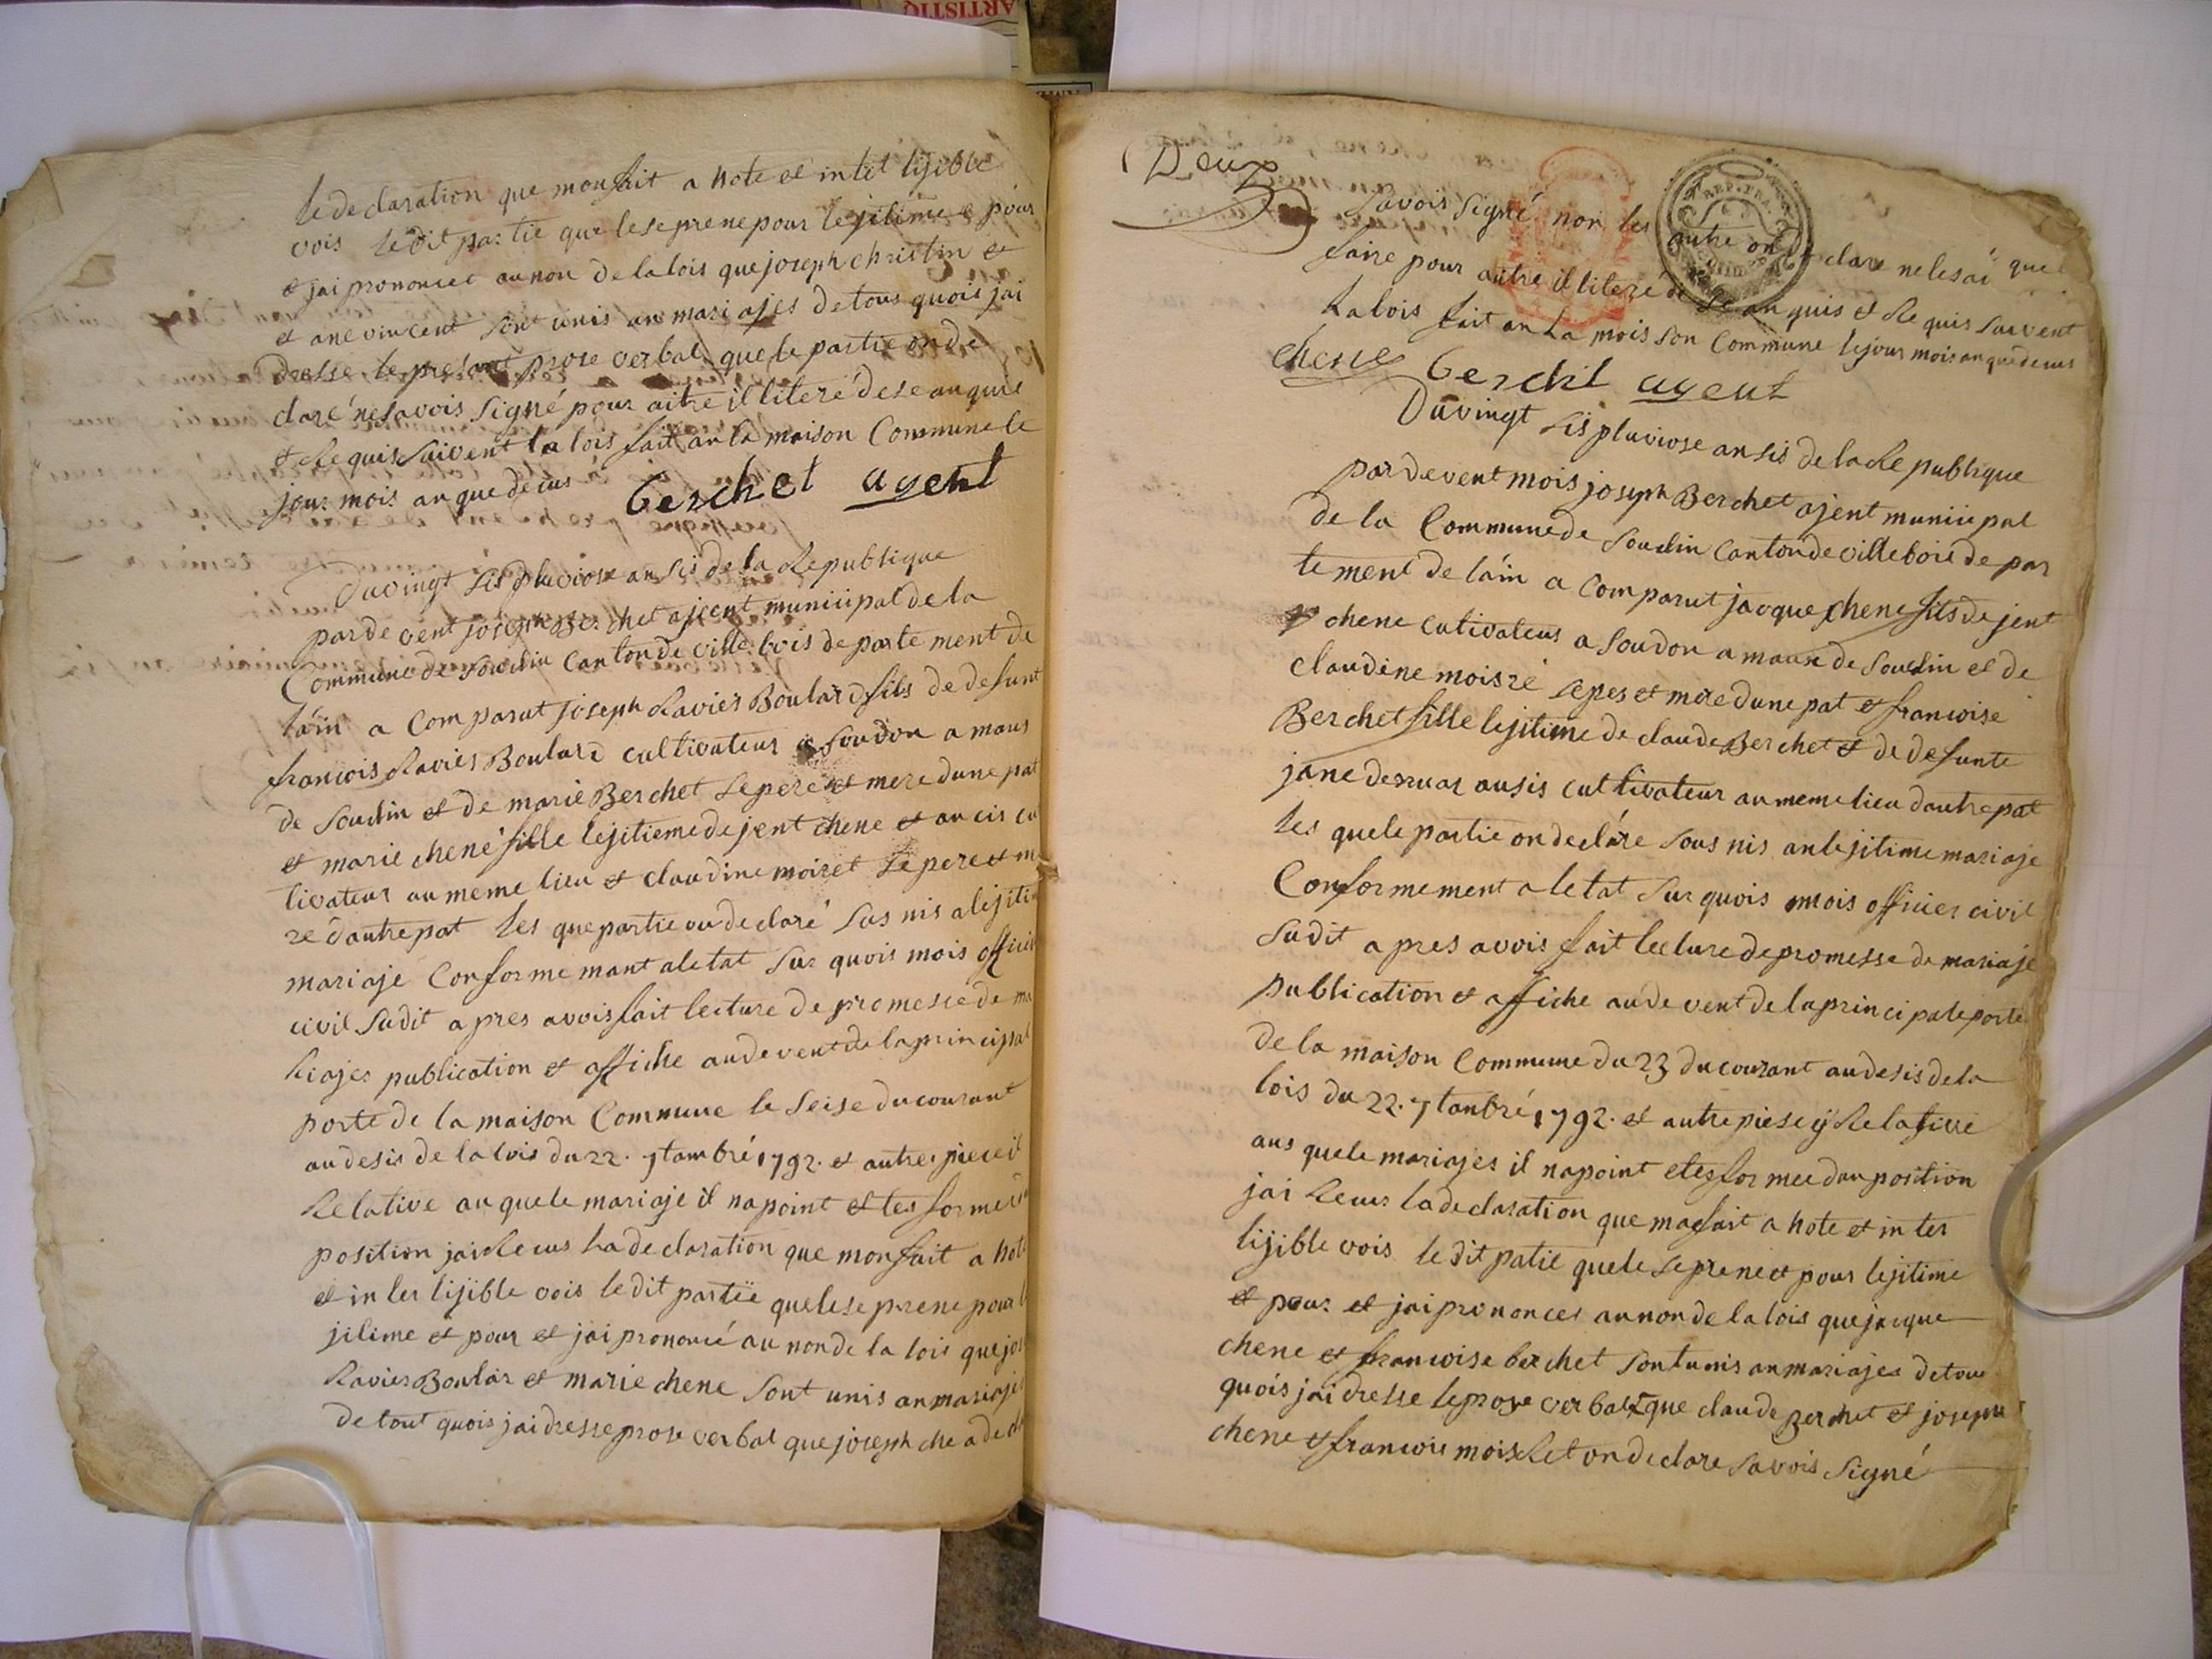 le declaration que mon fait a hote et intel lijible
vois le dit partie que le se prene pour lejitime e pour
e jai prononcer au non de la lois que joseph christin et
et ane vincent sont unis an mariajes de tous quois jai
dresse le present prose verbal que le partie on de
claré ne savois signé pour aitre il literé de se anquis
et Requis suivent la lois fait an la maison Commune le
jour mois an que decus berchet agent
Du vingt sis pluviose an sis de la Republique
par de vent joseph Berchet ajeent municipal de la
Commune de Soudin Canton de ville bois de parte ment de
láin a Comparut joseph Ravier Boulard fils de defunt
francois Ravier Boulard cultivateur a Soudon a maus
de Soudin et de marie Berchet se pere et mere dune pat
et marie chene fille lejitieme de jent chene et au cis cu
livateur au meme lieu et claudine moiret se pere et m
re d'autre pat les que partie on declaré sus nis a lejiti
mariaje Conforme mant a letat sur quois mois officie
civil sudit apres avois fait lecture de promesse de ma
Riajes publication et affiche au devent de la principal
porte de la maison Commune le Seise du courant
au desis de la lois du 22. 7tambré 1792. et autre piece il
Relative au quele mariaje il na point et tes formé
position jai Recus la declaration que mon fait a hot
et in ler lijible vois le dit partie que le se prene pour l
jilime et pour et jai prononcé au non de la lois que jos
Ravier Boular et marie chene sont unis an mariajes
de tout quois jai dresse prose verbal que joseph che a de cl
Deux
Savois signé non les autre on de clare ne le sai que
faire pour autre il literé de se anquis et Requis suivent
La lois fait an La mois son Commune le jour mois an que decus
chene berchet agent
Du vingt sis pluviose an sis de la Republique
par devent mois joseph Berchet ajent municipal
de la Commune de Soudin Canton de ville bois de par
tement de láin a Comparut jacque chene fils de jent
chene cutivateur a Soudon a maux de Soudin et de
claudine moiré se pes et mere dune pat et francoise
Berchet fille lejitime de claude Berchet et de defunte
jane desruas ausis cultivateur au meme lieu dautre pat
les quele partie on declare sous nis an lejitime mariaje
Conformement a letat sur quois mois officier civil
sudit apres avois fait lecture de promesse de mariaje
publication et affiche au de vent de la principale porte
de la maison Commune du 23 du courant au desis de la
lois du 22. 7tanbré 1792. et autre piese ÿ Relative
aus quele mariajes il na point etes formee dan position
jai Recus la declaration que ma fait a hote et in ter
lijible vois le dit patie quele se prene et pour lejitime
et pour et jai prononcer au non de la lois que jacque
chene et francoise berchet sont unis an mariajes de tous
quois jai dresse le prose verbal que claude Berchet et joseph
chene et francois mois Ret on declare savois signé